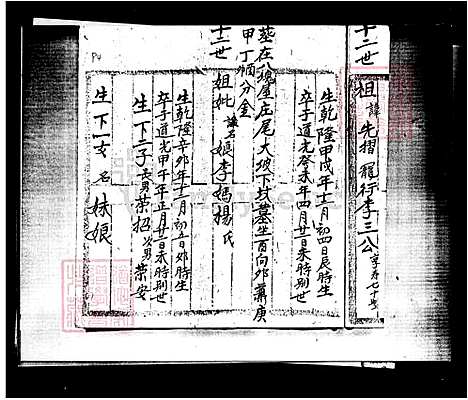 十二世
祖 諱 先摺 罷行李三公 享寿七十
生乾隆甲戌年十一月初四日辰時生
卒于道光癸未年四月廿一日未時別世
墓在八塊屋庄尾大坡下坟墓坐酉向卯兼庚
甲丁酉分金
十二世 祖妣 諱名 娘李媽楊氏
生乾隆辛卯年十二月初一日卯時生
卒于道光甲午年正月廿二日未時別世
生下二子 長男榮招 次男榮安
生下一女 名 妹娘